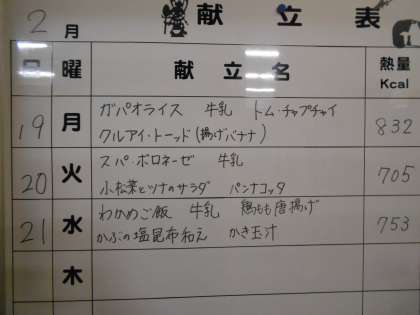 2月 献立表
日 曜 献立名 熱量 Kcal
19 月 ガパオライス 牛乳 トム・チャプチャイ
クルアイ・トード(揚げバナナ) 832
火 スパ・ボロネーゼ 牛乳
20 小松菜とツナのサラダ パンナコッタ 705
水 わかめご飯 牛乳 鶏もも唐揚げ
21 かぶの塩昆布和え かき玉汁 753
木